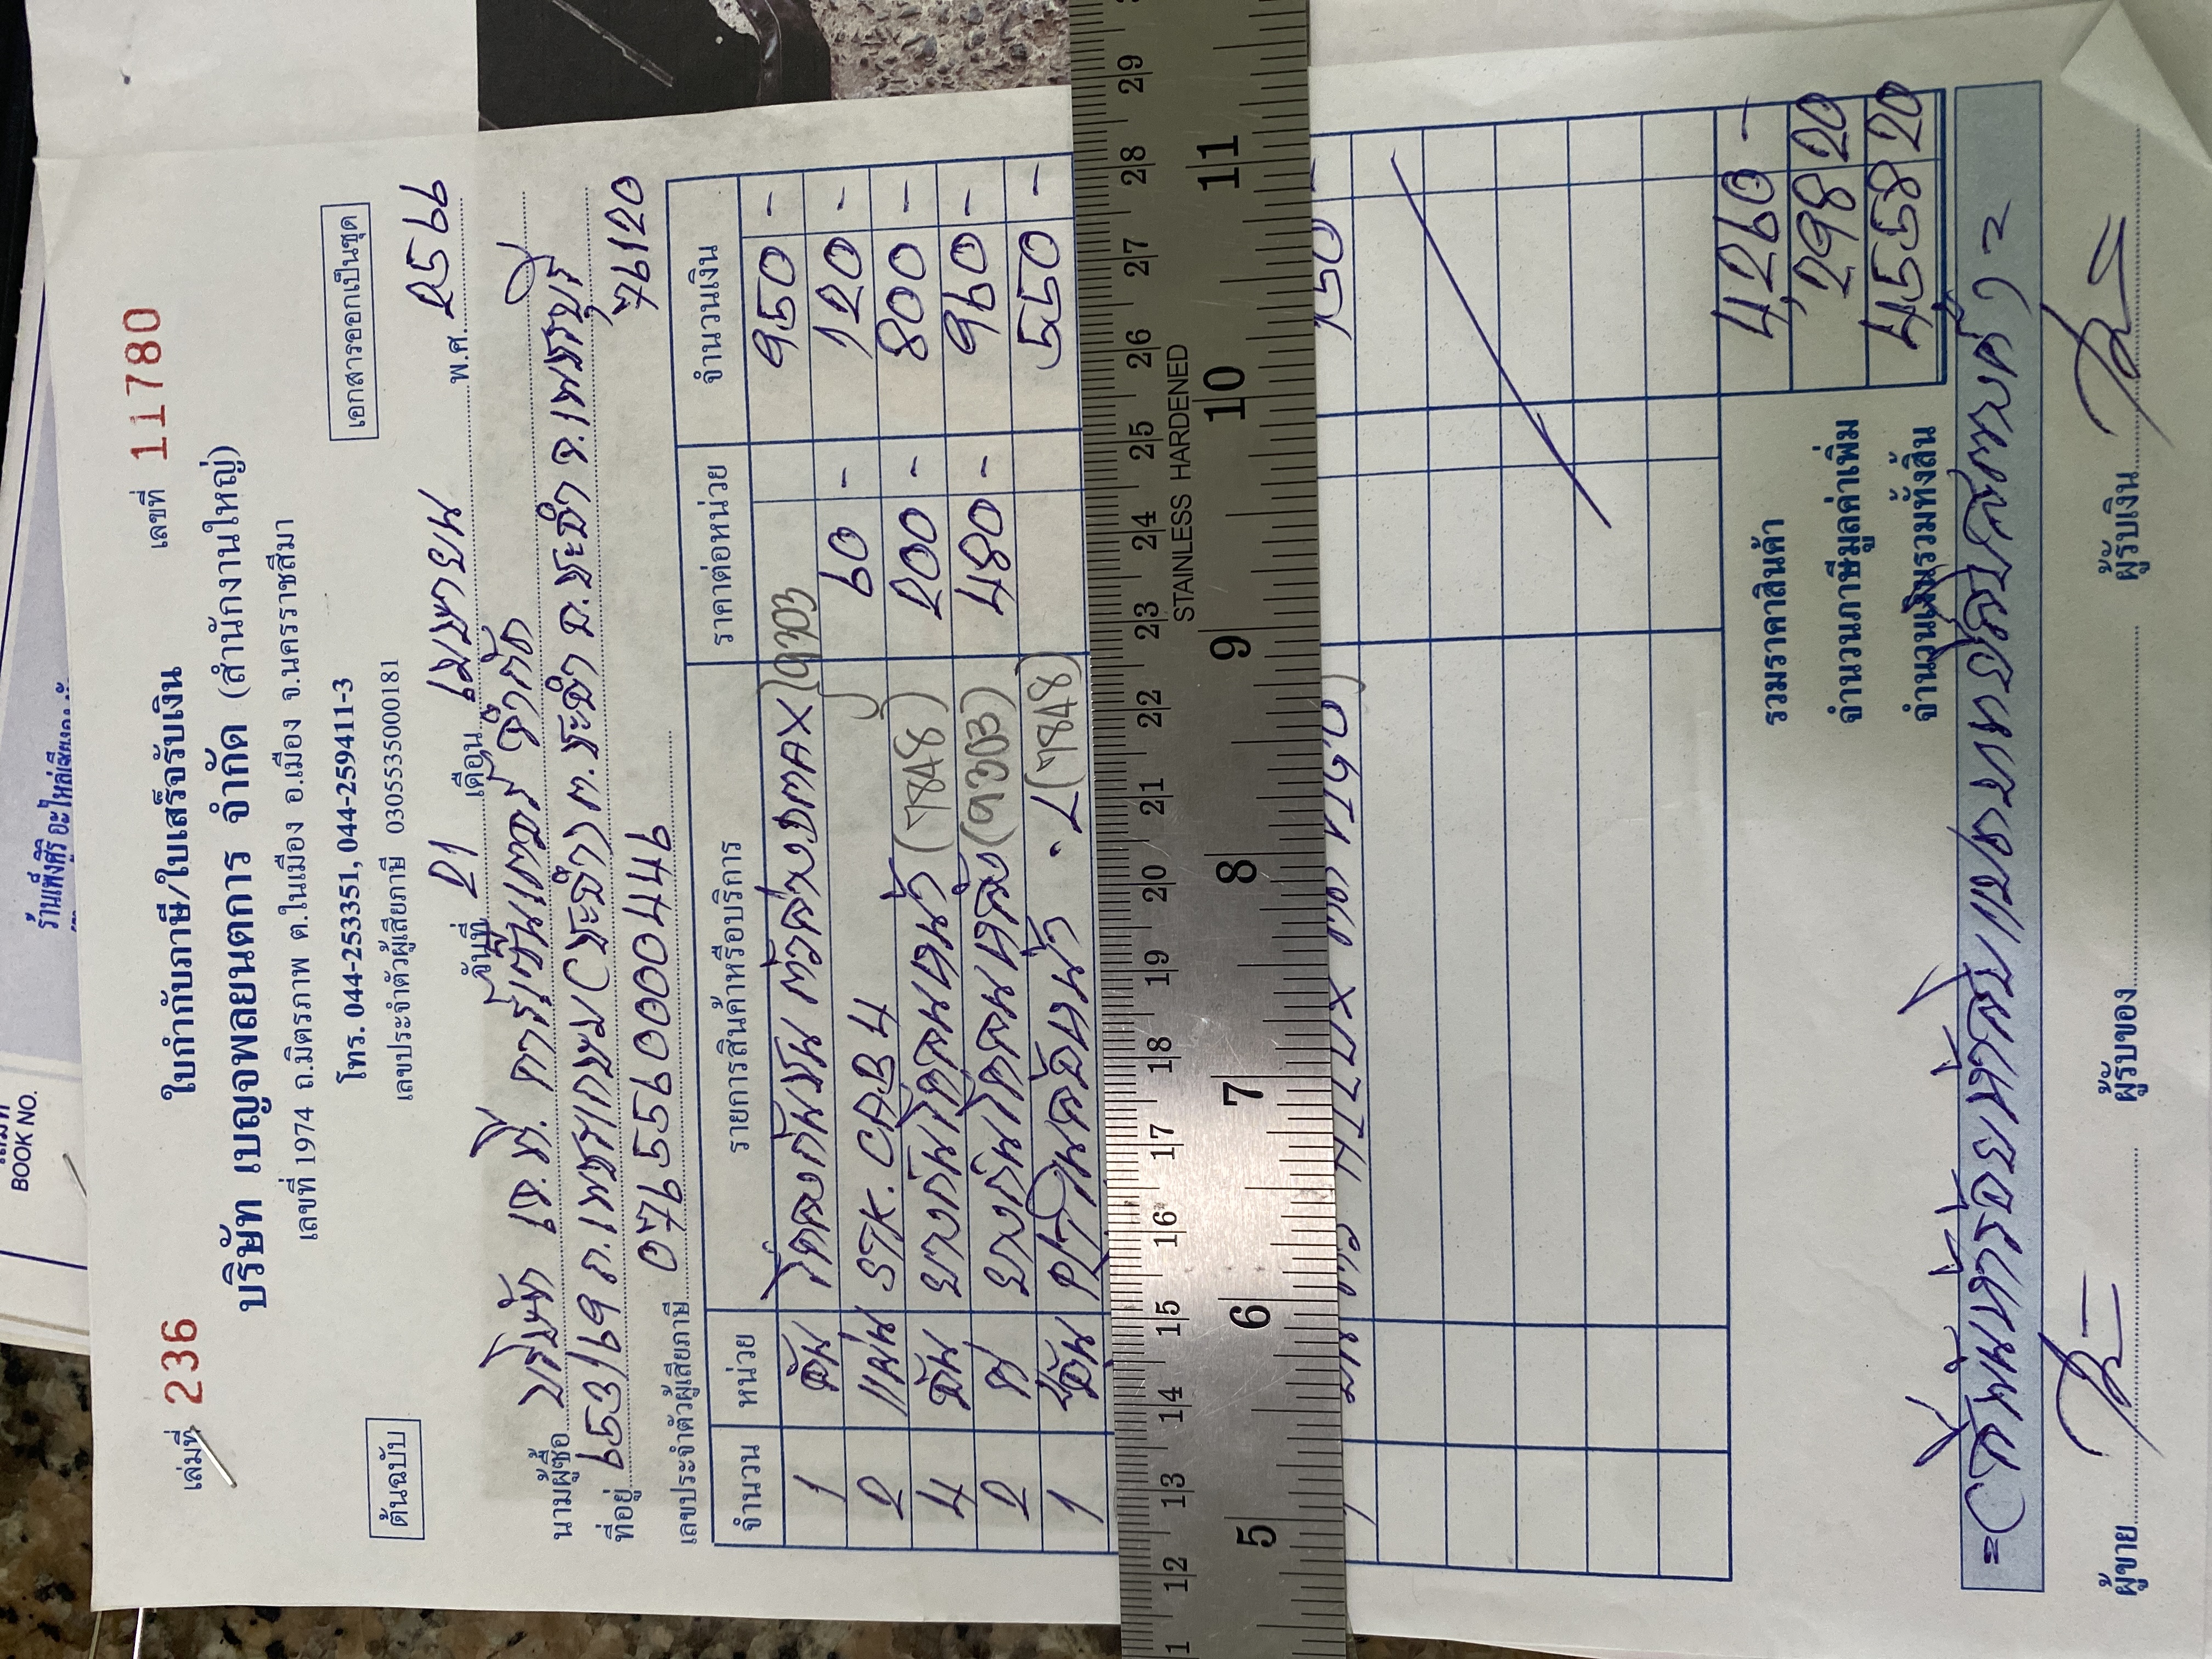 BOOK NO.
เล่มที่ 236 เลขที่ 11780
ใบกำกับภาษี/ใบเสร็จรับเงิน
บริษัท เบญจพลยนตการ จำกัด (สำนักงานใหญ่)
เลขที่ 1974 ถ.มิตรภาพ ต.ในเมือง อ.เมือง จ.นครราชสีมา
โทร. 044-253351, 044-259411-3
เลขประจำตัวผู้เสียภาษี 0305535000181
ต้นฉบับ
เอกสารออกเป็นชุด
วันที่ 21 เดือน เมษายน พ.ศ. 2566
นามผู้ซื้อ บริษัท เจ.พี. คาร์เซ็นเตอร์ จำกัด
ที่อยู่ 653/69 ถ.เพชรเกษม (ชะอำ) ต.ชะอำ อ.ชะอำ จ.เพชรบุรี
76120
เลขประจำตัวผู้เสียภาษี 0765590000449
จำนวน หน่วย รายการสินค้าหรือบริการ ราคาต่อหน่วย จำนวนเงิน
1 อัน โครงกันชน ตัวล่าง.DMAX (9303 950 -
2 แผ่น STK. CAB 4 60 - 120 -
4 อัน ยางกันโคลนหน้า (7848) 200 - 800 -
2 ยางกันโคลนหลัง (9303) 480 - 960 -
1 อัน หน้า . L (7848) 550 -
STAINLESS HARDENED
12 13 14 15 16 17 18 19 20 21 22 23 24 25 26 27 28 29
5 6 7 8 9 10 11
รวมราคาสินค้า 4,260 -
จำนวนภาษีมูลค่าเพิ่ม 298 20
จำนวนเงินรวมทั้งสิ้น 4,558 20
= (สี่พันห้าร้อยห้าสิบแปดบาทยี่สิบสตางค์) =
ผู้ขาย ผู้รับของ ผู้รับเงิน